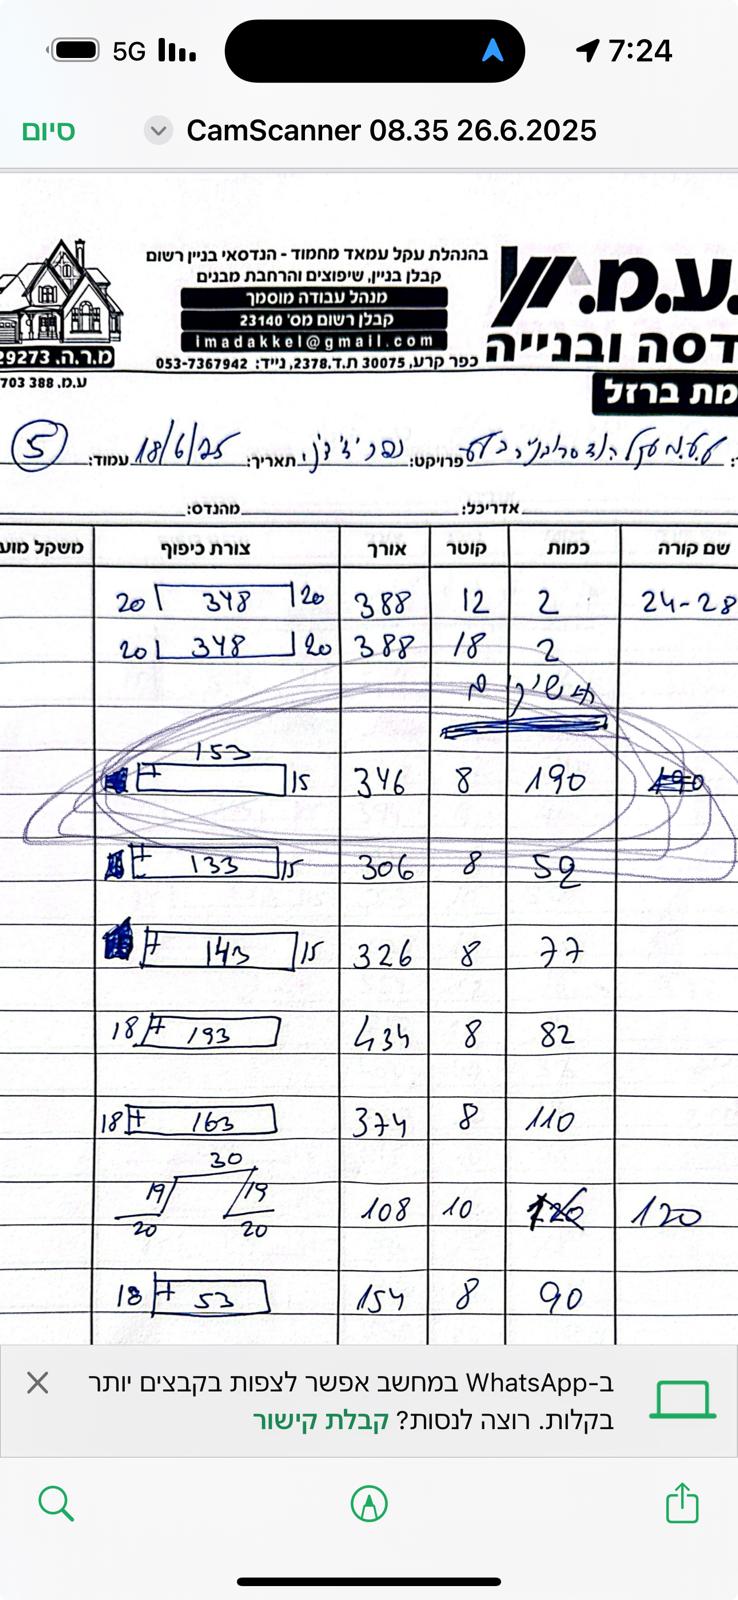 5G 7:24
סיום CamScanner 08.35 26.6.2025
ע.מ.
דסה ובנייה
מת ברזל
בהנהלת עקל עמאד מחמוד - הנדסאי בניין רשום
קבלן בניין, שיפוצים והרחבת מבנים
מנהל עבודה מוסמך
קבלן רשום מס' 23140
imadakkel@gmail.com
כפר קרע, 30075 ת.ד.2378, נייד: 053-7367942
מ.ר.ה. 29273
ע.מ. 388 703
פרויקט: תאריך: 18/6/25 עמוד: 5
אדריכל: מהנדס:
שם קורה כמות קוטר אורך צורת כיפוף משקל מוע
24-28 2 12 388 20 348 20
2 18 388 20 348 20
חישוקים
190 8 346 153 15
52 8 306 133 15
77 8 326 143 15
82 8 434 18 193
110 8 374 18 163
120 10 108 30 19 19 20 20
90 8 154 18 53
ב-WhatsApp במחשב אפשר לצפות בקבצים יותר
בקלות. רוצה לנסות? קבלת קישור